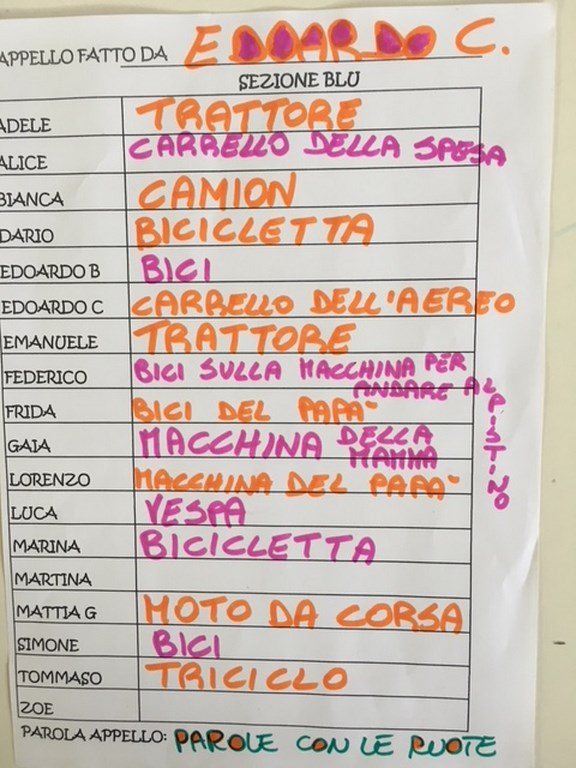 APPELLO FATTO DA EDOARDO C.
SEZIONE BLU
ADELE TRATTORE
ALICE CARRELLO DELLA SPESA
BIANCA CAMION
DARIO BICICLETTA
EDOARDO B BICI
EDOARDO C CARRELLO DELL'AEREO
EMANUELE TRATTORE
FEDERICO BICI SULLA MACCHINA PER
ANDARE AL PISTINO
FRIDA BICI DEL PAPA`
GAIA MACCHINA DELLA
MAMMA
LORENZO MACCHINA DEL PAPA`
LUCA VESPA
MARINA BICICLETTA
MARTINA
MATTIA G MOTO DA CORSA
SIMONE BICI
TOMMASO TRICICLO
ZOE
PAROLA APPELLO: PAROLE CON LE RUOTE